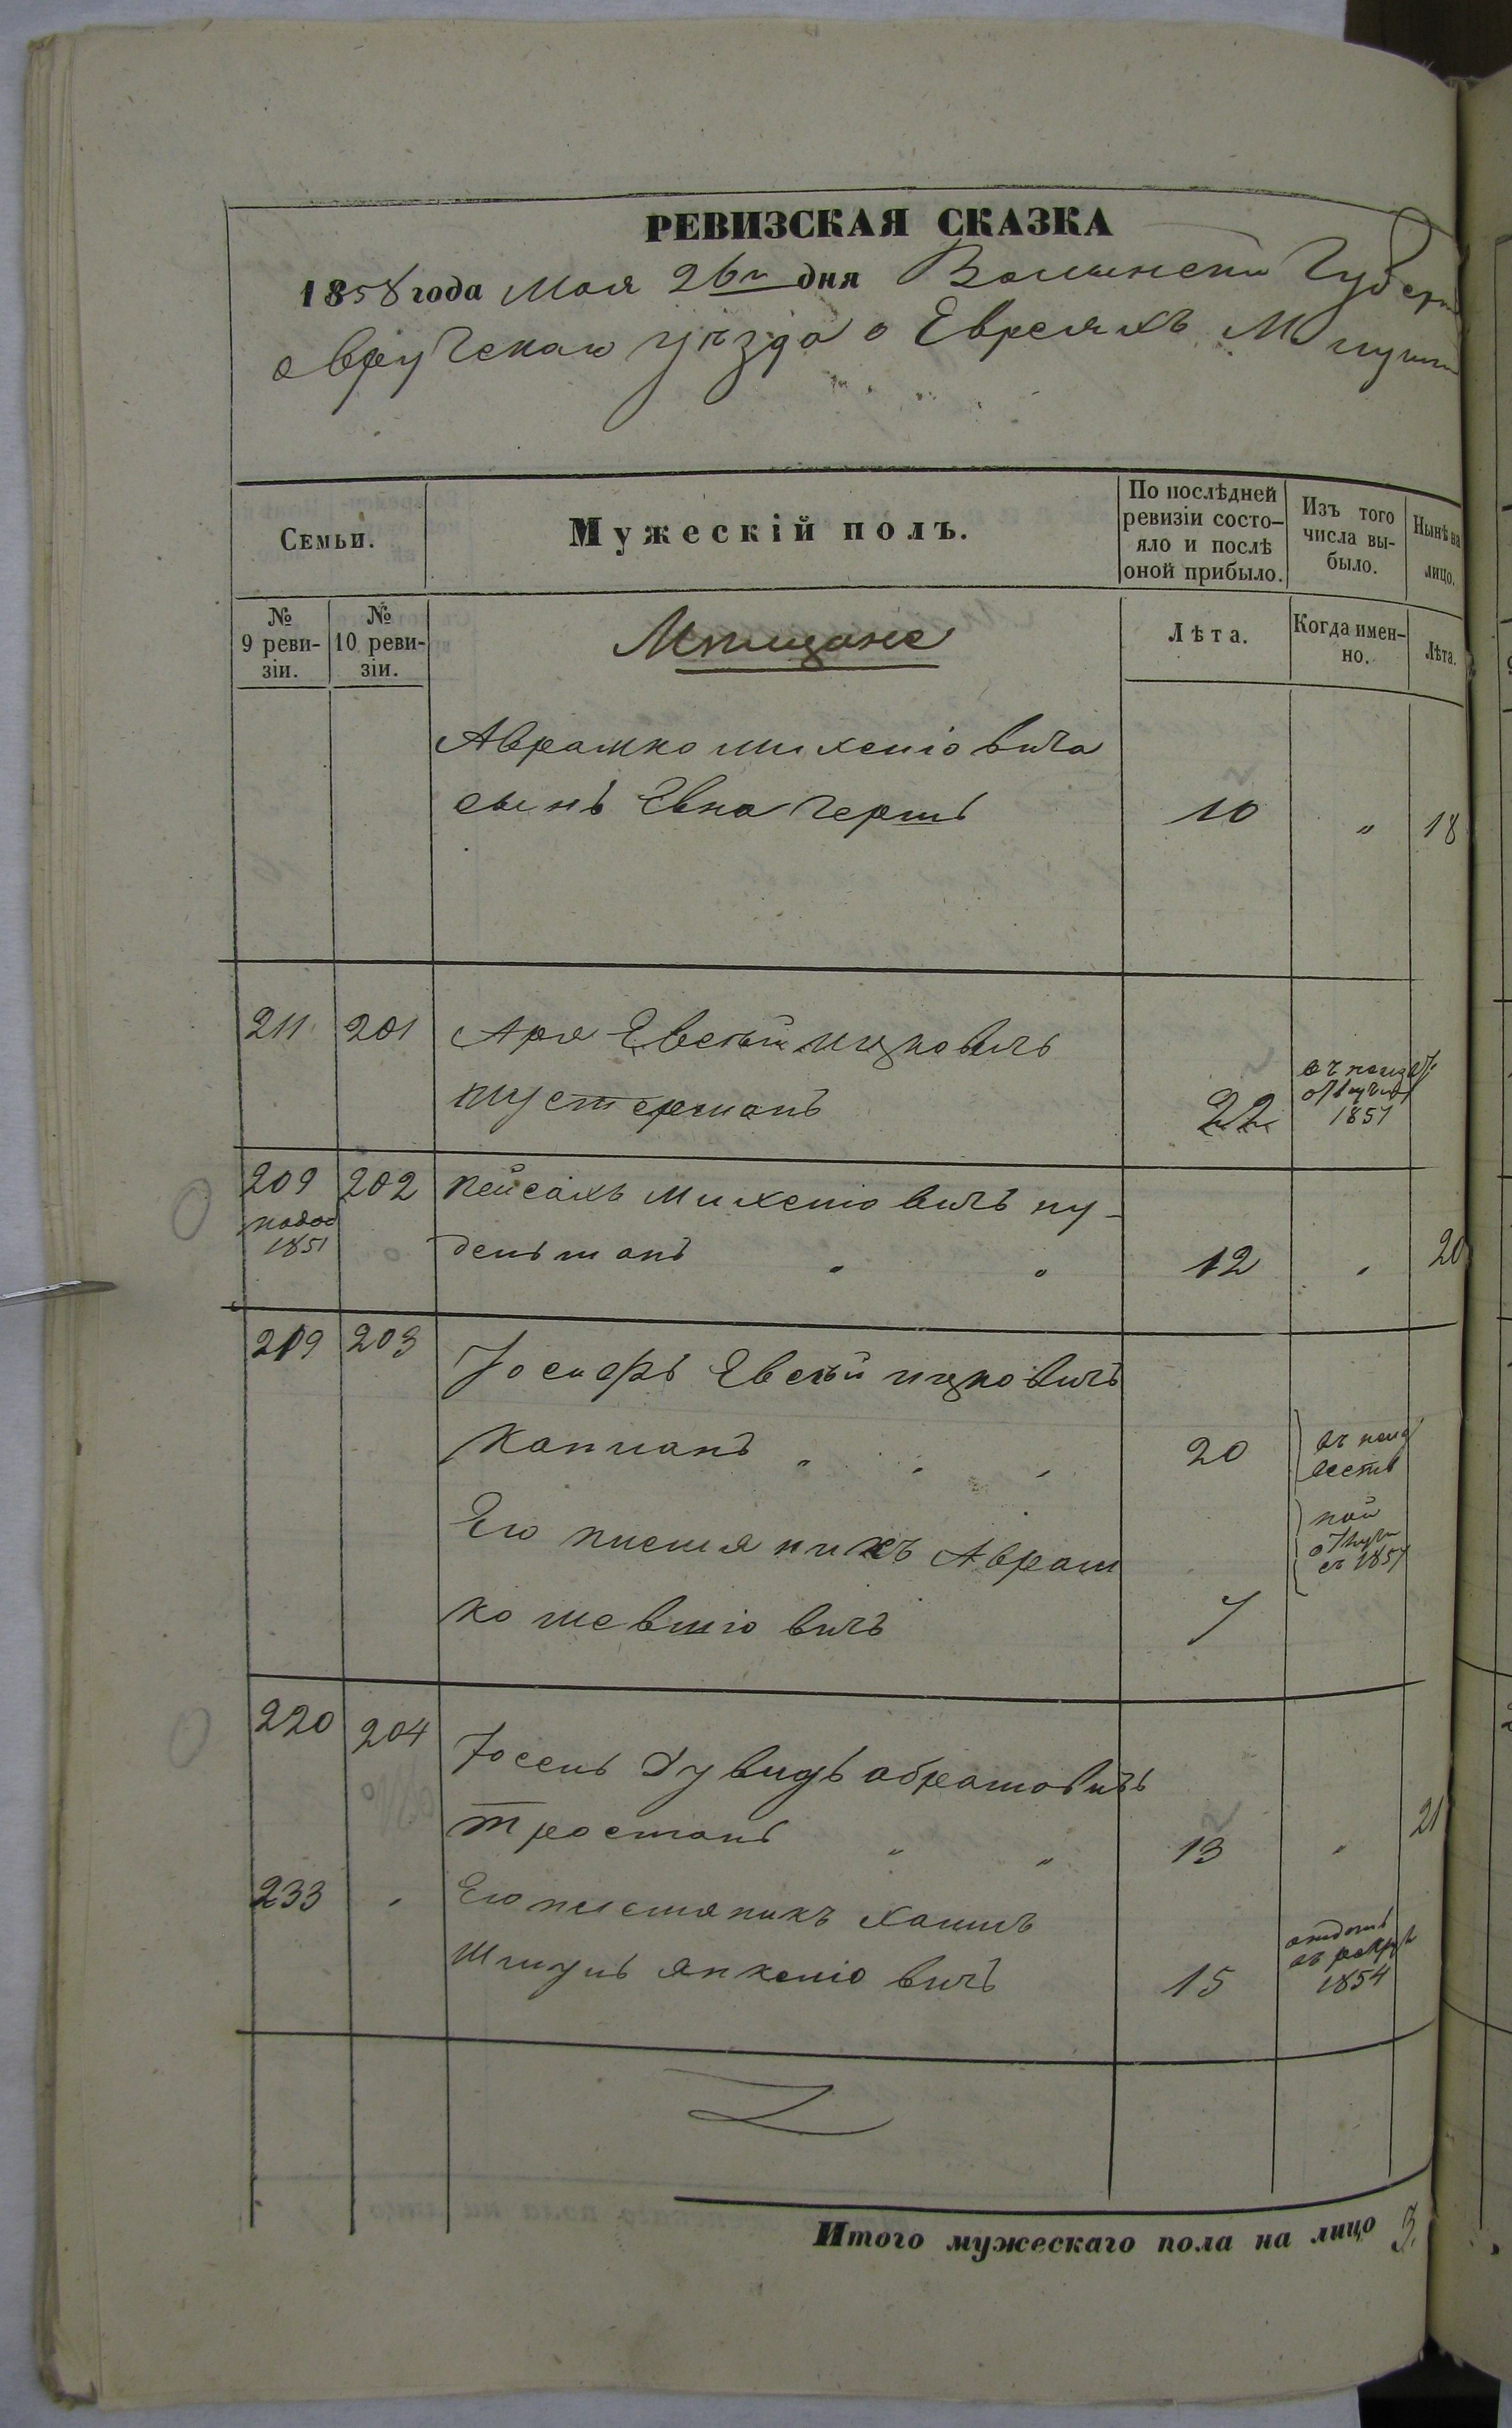 РЕВИЗСКАЯ СКАЗКА
1858 года Мая 26го дня Волынской Губерн
овручскаго уѣзда о Евреяхъ М
Семьи.
Мужескій полъ.
По послѣдней ревизіи состо-
яло и послѣ оной прибыло.
Изъ того числа вы-
было.
Нынѣ на лицо.
№ 9 реви-
зіи.
№ 10 реви-
зіи.
Мѣщане
Лѣта.
Когда имен-
но.
Лѣта.
Аврамко Михеліовича
сынъ Евна Гершъ 10 " 18
211 201 Аря Евсѣй Ицковичъ
22 1857
209 202 Пейсахъ Михеліовичъ пу-
1851 дельманъ " " 12 " 20
219 203 Іосифъ Евсѣй Ицковичъ
Капланъ " " " 20
Его племяникъ Аврам
ко шевліовичъ 7 съ 1857
220 204 Іосель Дувидъ абрамовичъ
тростанъ " " 13 " 21
233 " Его племяникъ Хаимъ
Шмуль янкеліовичъ 15 отданъ въ рекру 1854
Итого мужескаго пола на лицо 3.